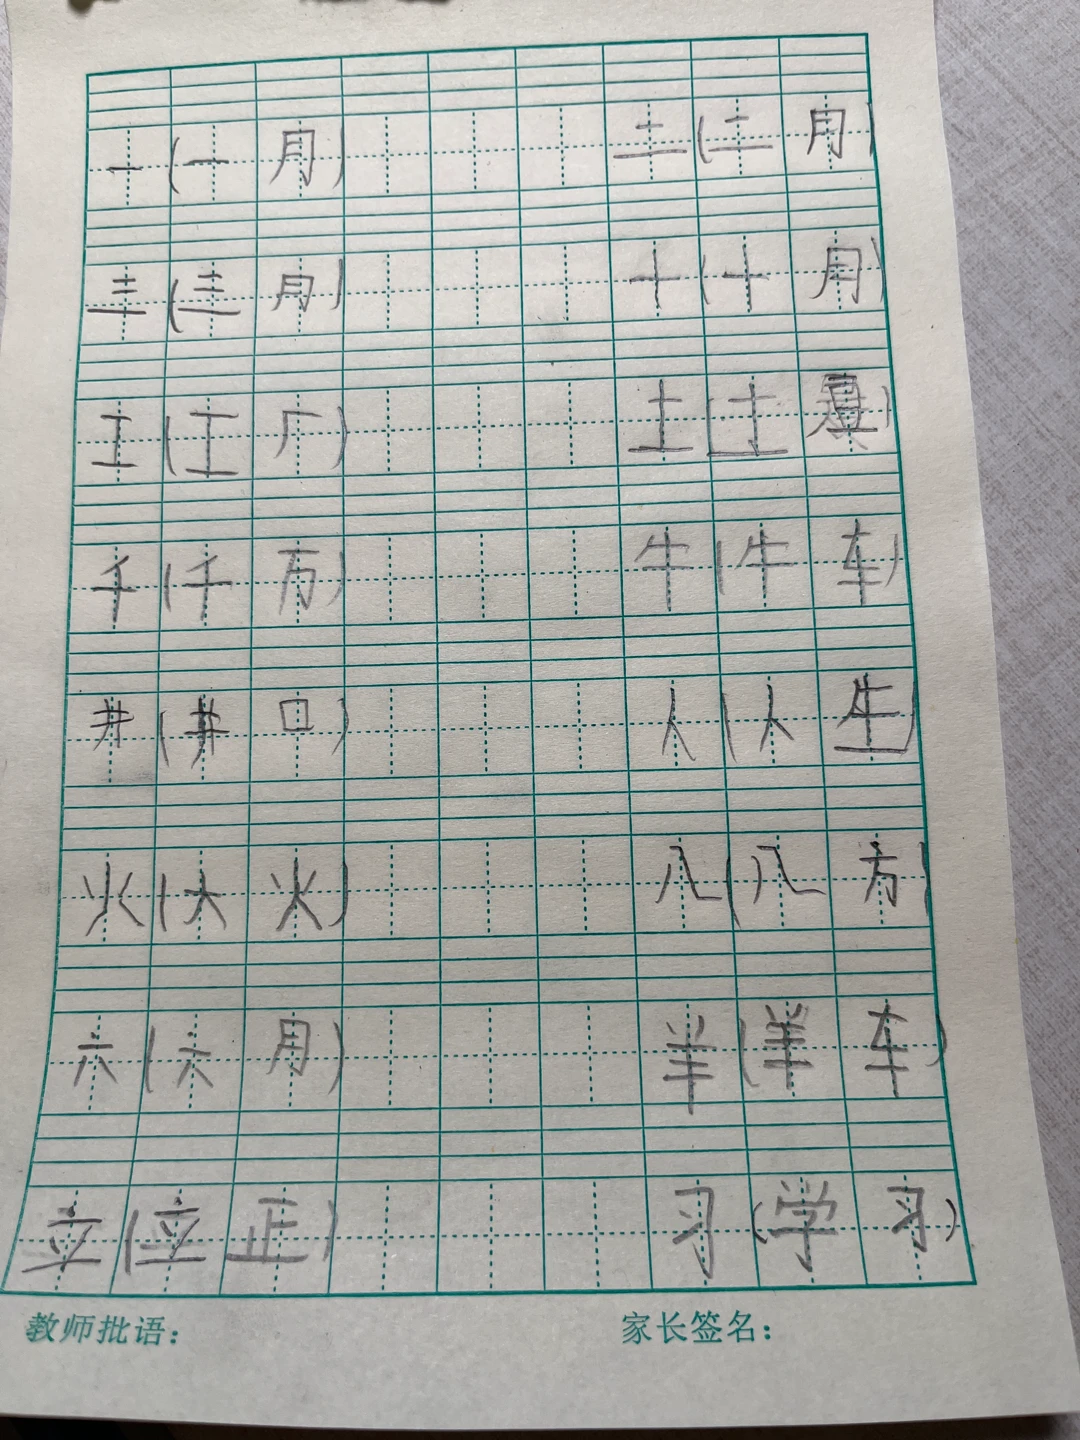 一(一月) 二(二月)
三(三月) 十(十月)
工(工厂) 土(土)
千(千方) 牛(牛车)
井(井口) 人(人生)
火(大火) 八(八方)
六(六月) 羊(羊车)
立(立正) 习(学习)
教师批语： 家长签名：